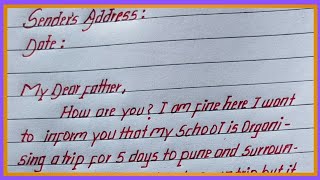 Sender's Address:
Date:
My Dear Father,
How are you? I am fine here I want
to inform you that my School is Organi-
sing a trip for 5 days to pune and Surroun-
trip but it